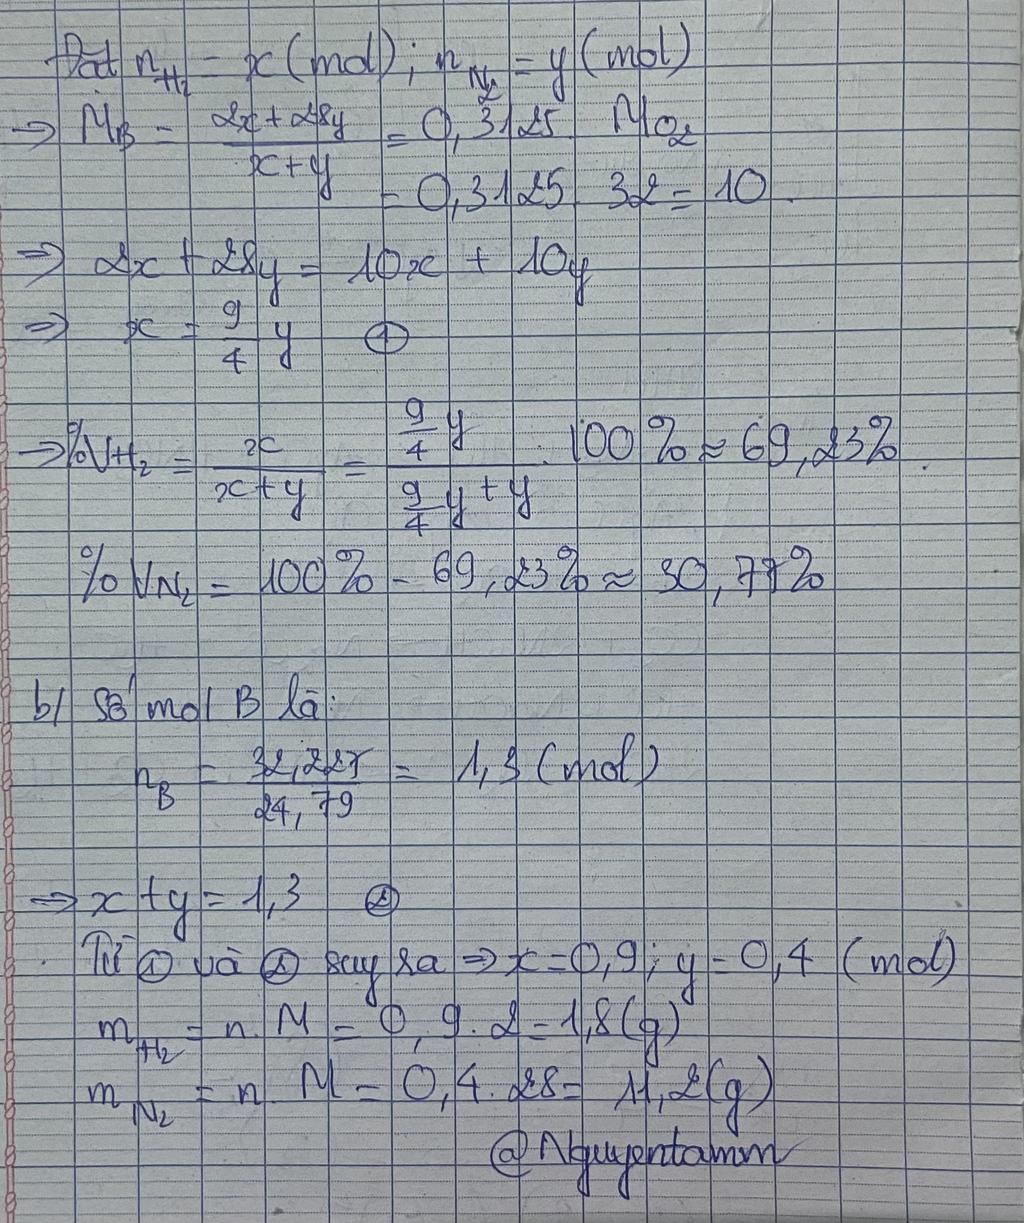 Đặt n_H₂ = x (mol); n_N₂ = y (mol)
⇒ M_B = (2x + 28y)/(x + y) = 0,3125 . M_O₂
= 0,3125 . 32 = 10.
⇒ 2x + 28y = 10x + 10y
⇒ x = 9/4 y ①
⇒ %V_H₂ = x/(x + y) = (9/4 y)/(9/4 y + y) . 100% ≈ 69,23%.
%V_N₂ = 100% - 69,23% ≈ 30,77%
b/ Số mol B là:
n_B = 32,227/24,79 = 1,3 (mol)
⇒ x + y = 1,3 ②
Từ ① và ② suy ra ⇒ x = 0,9; y = 0,4 (mol)
m_H₂ = n . M = 0,9 . 2 = 1,8 (g)
m_N₂ = n . M = 0,4 . 28 = 11,2 (g)
@Nguyentamm